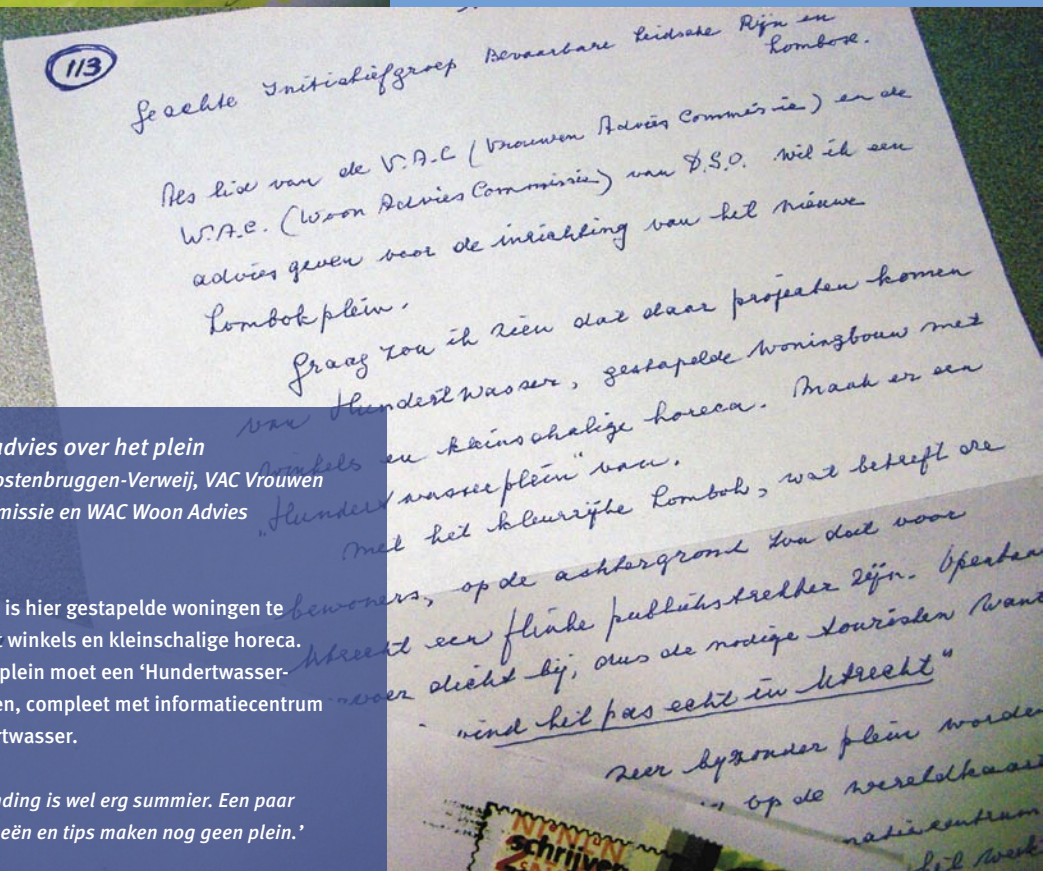 113
Geachte Initiatiefgroep Bevaarbare Leidsche Rijn en
Lombok.
Als lid van de V.A.C (Vrouwen Advies Commissie) en de
W.A.C. (Woon Advies Commissie) van D.S.O. wil ik een
advies geven voor de inrichting van het nieuwe
Lombokplein.
Graag zou ik zien dat daar projecten komen
van Hundertwasser, gestapelde woningbouw met
winkels en kleinschalige horeca. Maak er een
„Hundertwasserplein" van.
Met het kleurrijke Lombok, wat betreft de
bewoners, op de achtergrond zou dat voor
Utrecht een flinke publiekstrekker zijn. Openbaar
dicht bij, dus de nodige touristen want
vind het pas echt in Utrecht"
zeer byzonder plein worden
op de wereldkaart
het
advies over het plein
ostenbruggen-Verweij, VAC Vrouwen
missie en WAC Woon Advies
is hier gestapelde woningen te
t winkels en kleinschalige horeca.
plein moet een ‘Hundertwasser-
en, compleet met informatiecentrum
rtwasser.
ding is wel erg summier. Een paar
eën en tips maken nog geen plein.’
schrijven